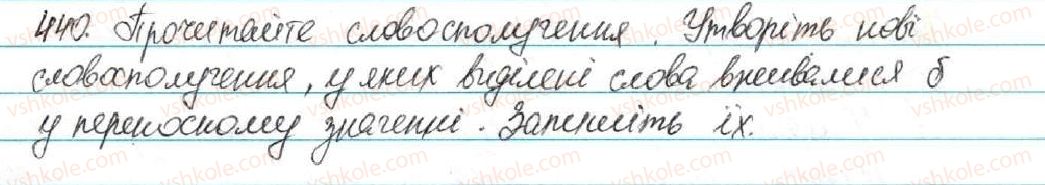 440. Прочитайте словосполучення. Утворіть нові
словосполучення, у яких виділені слова вживалися б
у переносному значенні. Запишіть їх.